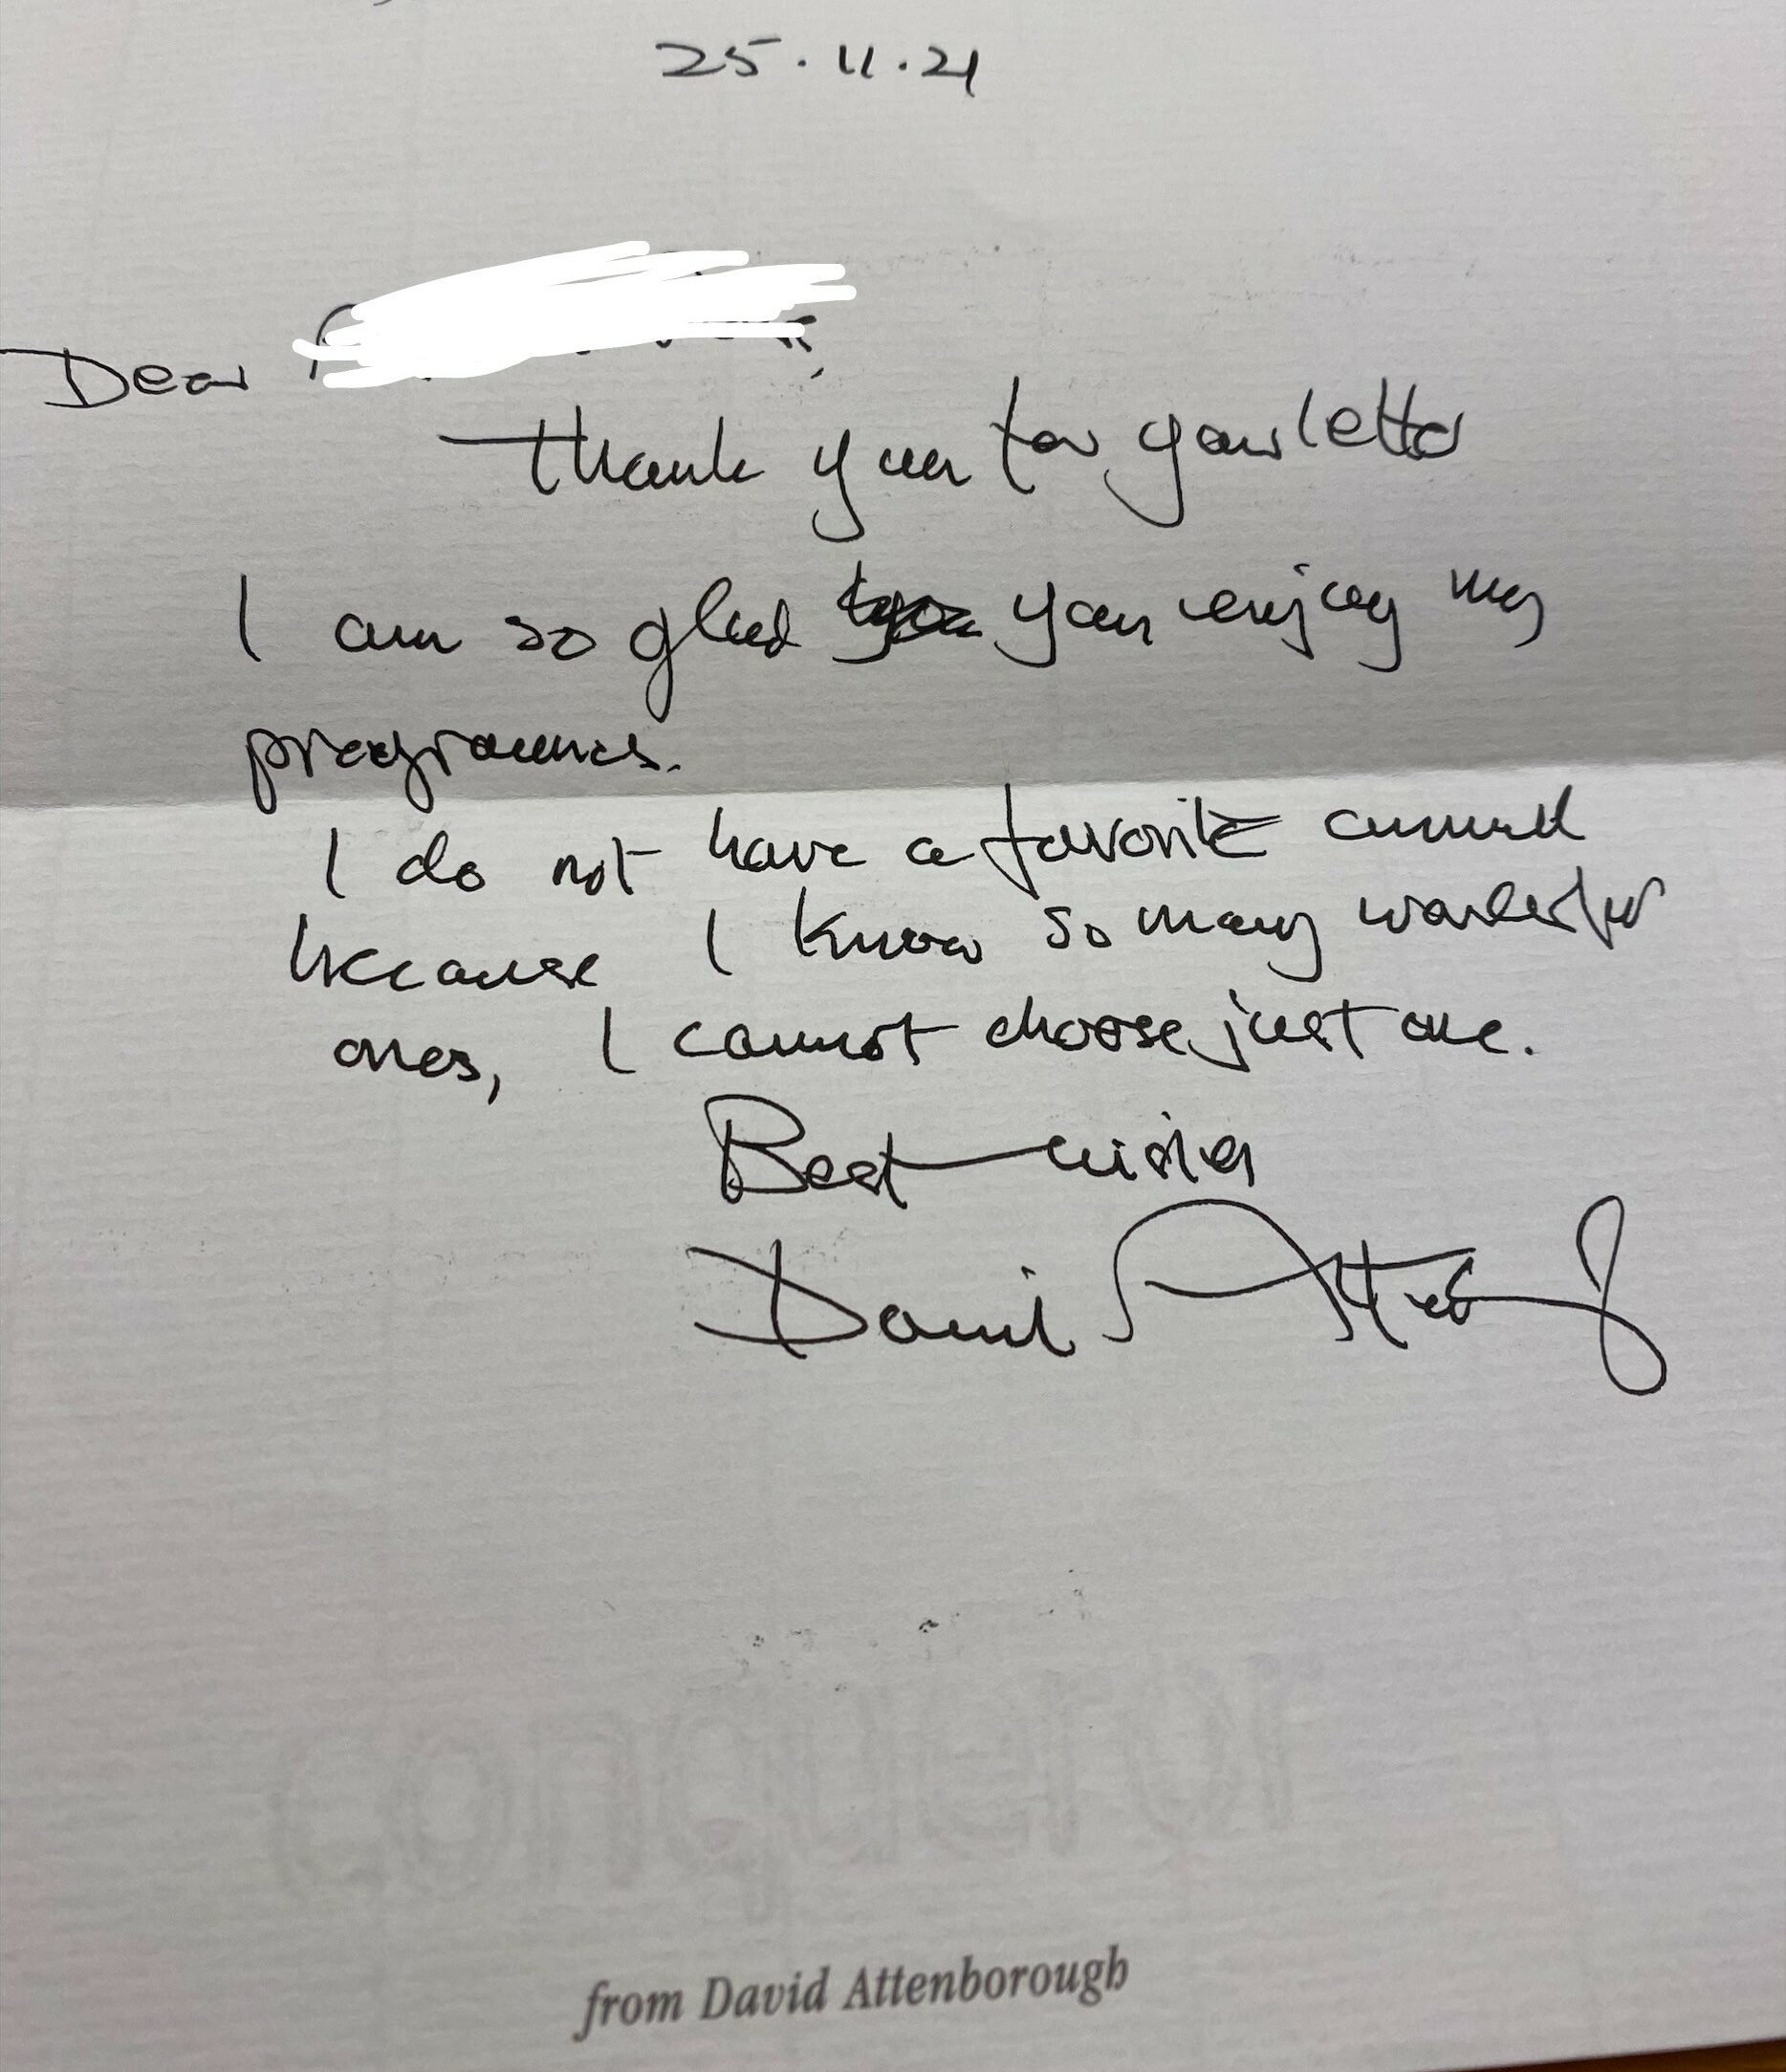 25.11.21
Dear
Thank you for your letter
I am so glad you enjoy my
programmes.
I do not have a favorite animal
because I know so many wonderful
ones, I cannot choose just one.
Best wishes
David Attenborough
conqueror
from David Attenborough